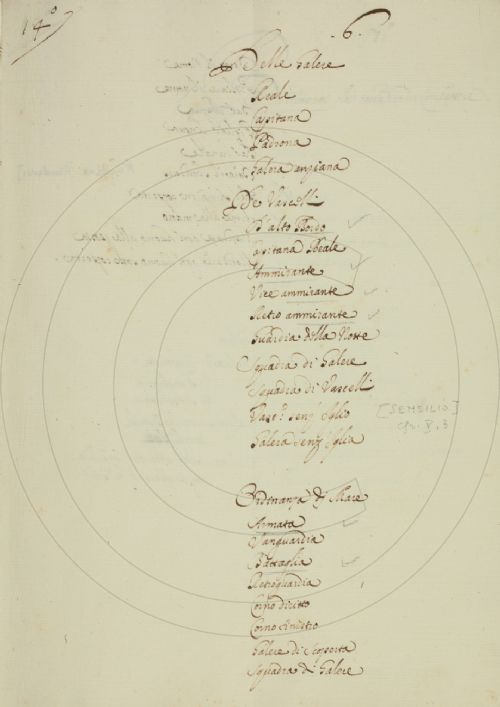 14°
.6.
Delle Galere
Reale
Capitana
Padrona
Galera anziana
De Vascelli
D'alto Bordo
Capitana Reale
Ammirante
Vice ammirante
Retro ammirante
Guardia della Notte
Squadra di Galere
Squadra di Vascelli
senz'
[SENSILIO]
Cfr. V, 3
Galera senz'
Ordinanza di Mare
Armata
Vanguardia
Battaglia
Retroguardia
Corno diritto
Corno sinistro
Galere di scoperta
Squadra di Galere